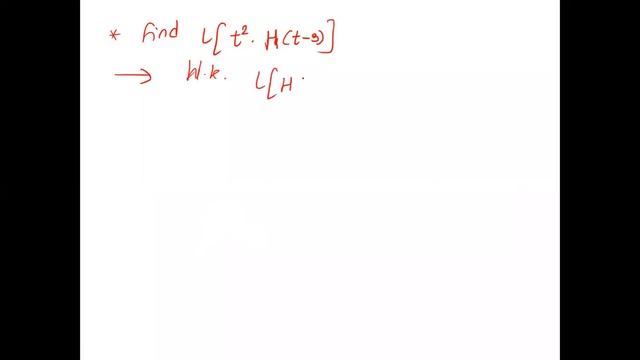 * find L[t². H(t-3)]
→ W.k. L[H